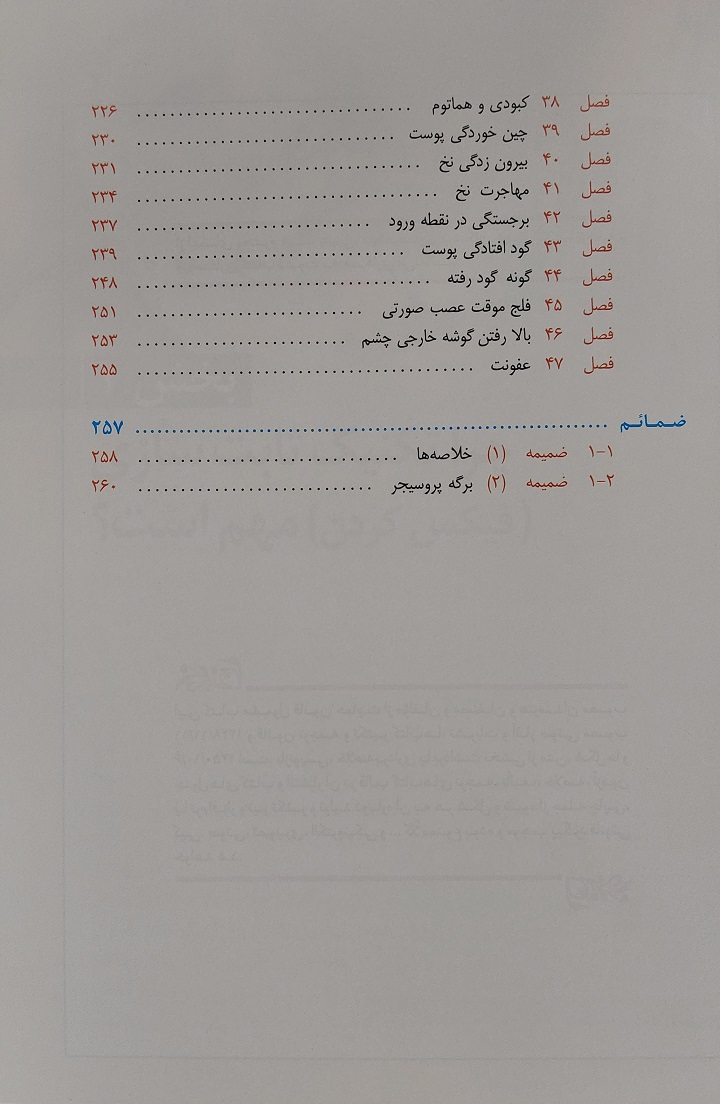 فصل ۳۸ کبودی و هماتوم ۲۲۶
فصل ۳۹ چین خوردگی پوست ۲۳۰
فصل ۴۰ بیرون زدگی نخ ۲۳۱
فصل ۴۱ مهاجرت نخ ۲۳۴
فصل ۴۲ برجستگی در نقطه ورود ۲۳۷
فصل ۴۳ گود افتادگی پوست ۲۳۹
فصل ۴۴ گونه گود رفته ۲۴۸
فصل ۴۵ فلج موقت عصب صورتی ۲۵۱
فصل ۴۶ بالا رفتن گوشه خارجی چشم ۲۵۳
فصل ۴۷ عفونت ۲۵۵
ضمائم ۲۵۷
۱-۱ ضمیمه (۱) خلاصه‌ها ۲۵۸
۱-۲ ضمیمه (۲) برگه پروسیجر ۲۶۰